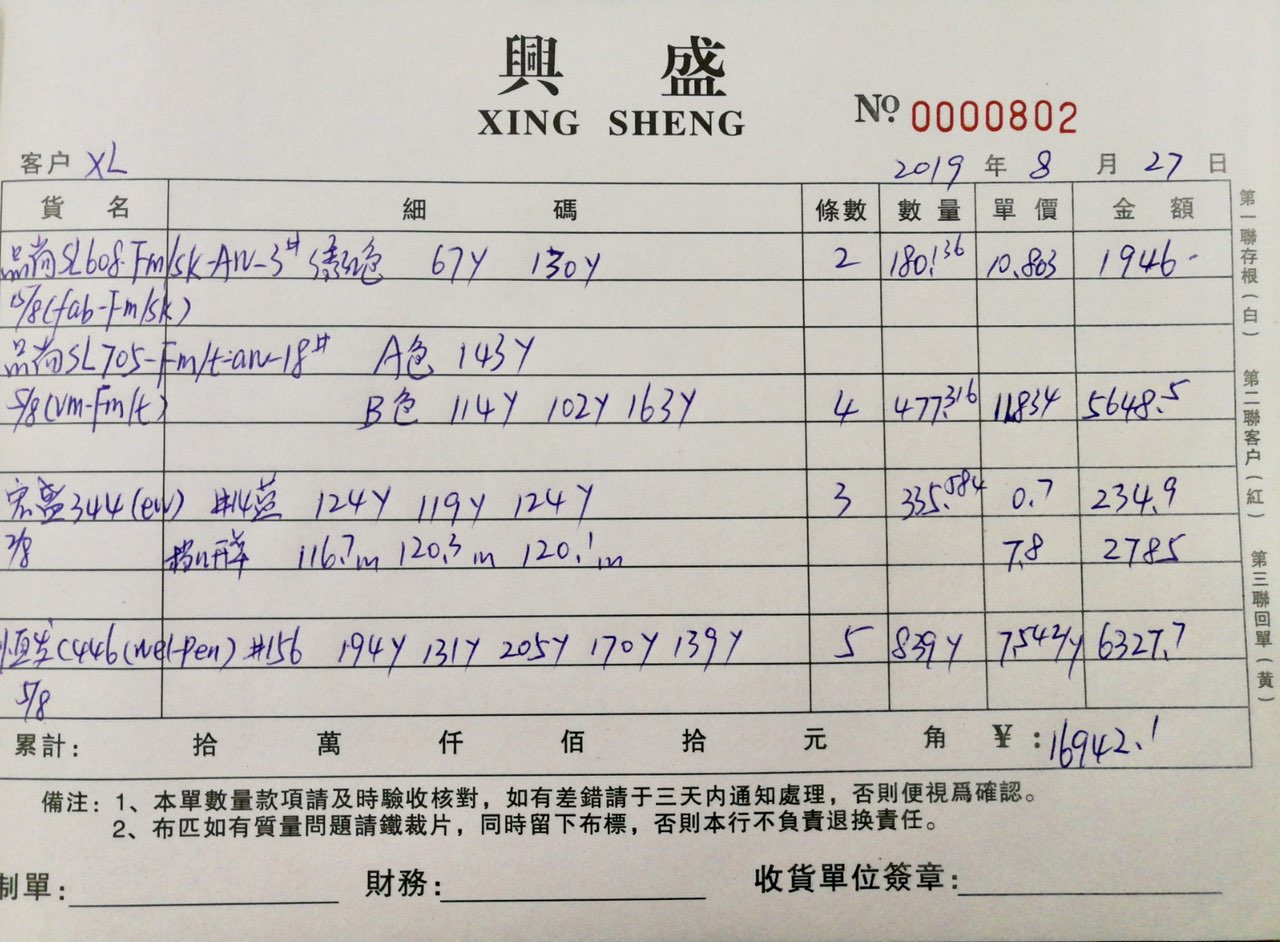 興 盛
XING SHENG
№ 0000802
客户 XL 2019 年 8 月 27 日
貨 名 細 碼 條數 數量 單價 金額
品尚SL608-Fm/sk-AW-3# 67Y 130Y 2 180.136 10.803 1946-
15/8(fab-Fm/sk)
品尚SL705-Fm/t-aw-18# A色 143Y
5/8(vm-Fm/t) B色 114Y 102Y 163Y 4 477.316 11.834 5648.5
宏盛344(ew) #14蓝 124Y 119Y 124Y 3 335.584 0.7 234.9
7/8 116.7m 120.3m 120.1m 7.8 2785
恒发C446(wel-pen) #156 194Y 131Y 205Y 170Y 139Y 5 839Y 7.542/Y 6327.7
5/8
累計: 拾 萬 仟 佰 拾 元 角 ¥:16942.1
備注: 1、本單數量款項請及時驗收核對，如有差錯請于三天内通知處理，否則便視爲確認。
2、布匹如有質量問題請鐵裁片，同時留下布標，否則本行不負責退换責任。
制單: 財務: 收貨單位簽章:
第一聯存根(白) 第二聯客户(紅) 第三聯回單(黄)